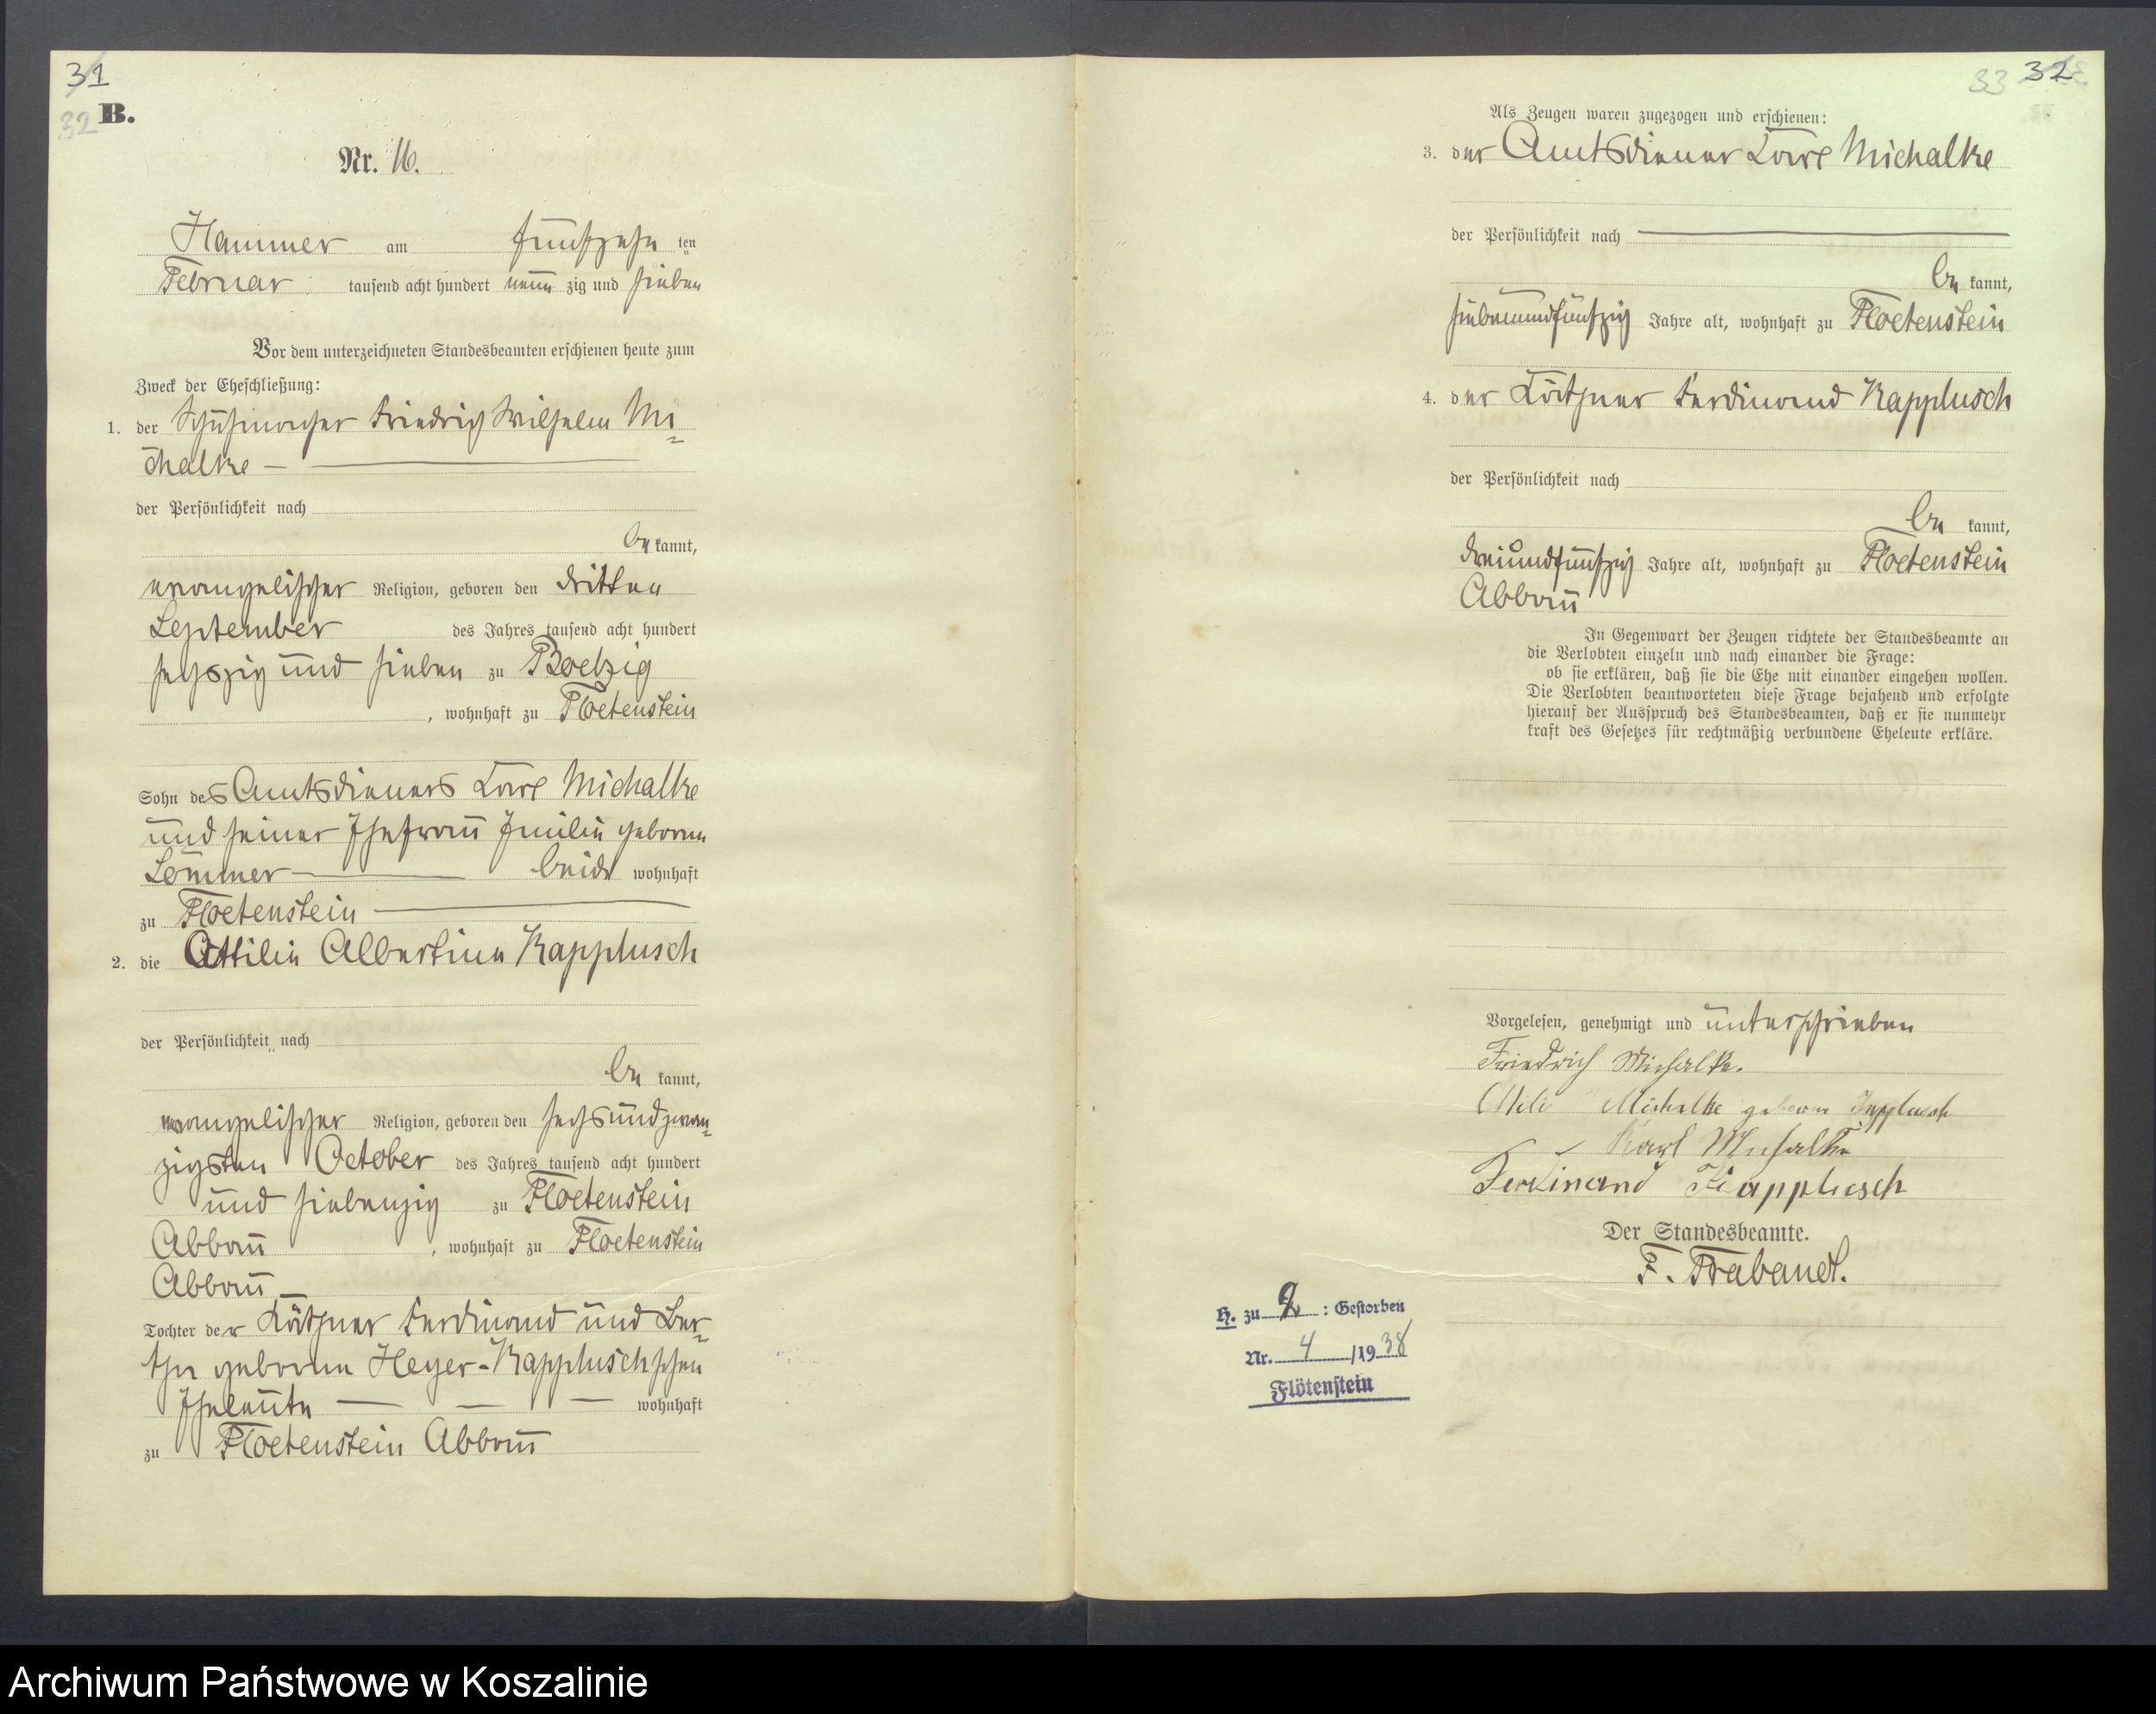 31
32 B.
Nr. 16.
Hammer am fünfzehnten
Februar tausend acht hundert neunzig und sieben
Vor dem unterzeichneten Standesbeamten erschienen heute zum
Zweck der Eheschließung:
1. der Schuhmacher Friedrich Wilhelm Mi=
chalke
der Persönlichkeit nach
bekannt,
evangelischer Religion, geboren den dritten
September des Jahres tausend acht hundert
sechszig und sieben zu Boelzig
, wohnhaft zu Floetenstein
Sohn des Amtsdieners Karl Michalke
und seiner Ehefrau Emilie geborene
Sommer beide wohnhaft
zu Floetenstein
2. die Ottilie Albertine Kapplusch
der Persönlichkeit nach
bekannt,
evangelischer Religion, geboren den sechsundzwan=
zigsten October des Jahres tausend acht hundert
und siebenzig zu Floetenstein
Abbau, wohnhaft zu Floetenstein
Abbau
Tochter der Käthner Ferdinand und Ber=
tha geborene Heyer-Kapplusch'schen
Eheleute wohnhaft
zu Floetenstein Abbau
33 32
Als Zeugen waren zugezogen und erschienen:
3. der Amtsdiener Karl Michalke
der Persönlichkeit nach
bekannt,
siebenundfünfzig Jahre alt, wohnhaft zu Floetenstein
4. der Käthner Ferdinand Kapplusch
der Persönlichkeit nach
bekannt,
dreiundfünfzig Jahre alt, wohnhaft zu Floetenstein
Abbau
In Gegenwart der Zeugen richtete der Standesbeamte an
die Verlobten einzeln und nach einander die Frage:
ob sie erklären, daß sie die Ehe mit einander eingehen wollen.
Die Verlobten beantworteten diese Frage bejahend und erfolgte
hierauf der Ausspruch des Standesbeamten, daß er sie nunmehr
kraft des Gesetzes für rechtmäßig verbundene Eheleute erkläre.
Vorgelesen, genehmigt und unterschrieben
Friedrich Michalke.
Michalke geboren Kapplusch
Karl Michalke
Ferdinand Kapplusch
Der Standesbeamte.
F. Brabandt.
H. zu 2 : Gestorben
Nr. 4 /1938
Flötenstein
Archiwum Państwowe w Koszalinie